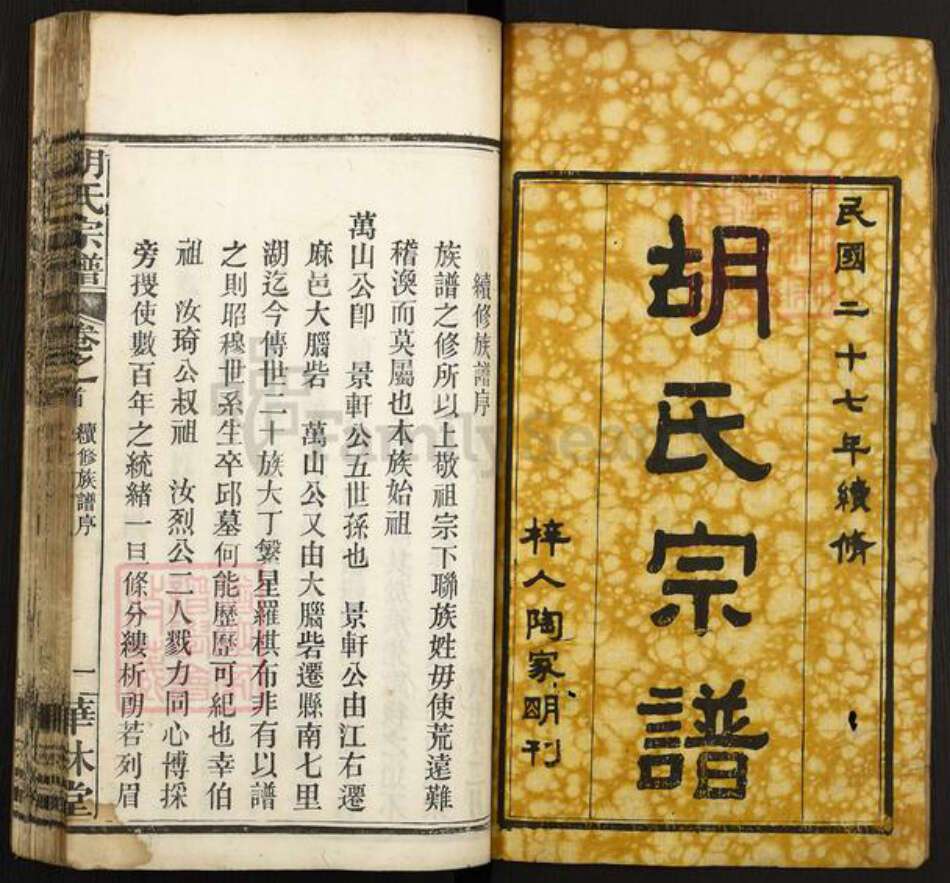 民國二十七年續脩
胡氏宗譜
梓人陶家明刊
續修族譜序
族譜之修所以上敬祖宗下聯族姓毋使荒遠難
稽渙而莫屬也本族始祖
萬山公卽 景軒公五世孫也 景軒公由江右遷
麻邑大腦砦 萬山公又由大腦砦遷縣南七里
湖迄今傳世二十族大丁繁星羅棋布非有以譜
之則昭穆世系生卒邱墓何能歷歷可紀也幸伯
祖 汝琦公叔祖 汝烈公二人戮力同心博採
旁搜使數百年之統緒一旦條分縷析朗若列眉
胡氏宗譜 卷之首 續修族譜序 一 華林堂
FamilySearch